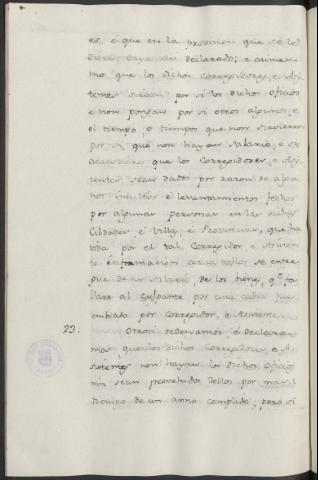 es, o que en la provision que se le
diere, vaya ansi declarado; e asimes-
mo que los dichos Corregidores, e Asis-
tentes sirvan por si los dichos oficios
e non pongan por si otros algunos, e
el tiempo, o tiempos que non sirvieren
por si, que non hayan salario, e si
acaesciere que los Corregidores, e Asis-
tentes sean dados por razon de algu-
nos insultos e levantamientos fechos
por algunas personas en las dichas
Cibdades, e Villas, e Provincias, que ha-
vida por el tal Corregidor e Asistente
informacion cerca dello se entre-
gue de su salario, de los bienes, que fa-
llare al culpante por cuia cabsa fue
embiado por Corregidor, e Asistente
23. Otrosi ordenamos, e declara-
mos, que los dichos Corregidores, e A-
sistentes non hayan los dichos Oficios
nin sean proveidos dellos por mas
tiempo de un anno complido; pero si